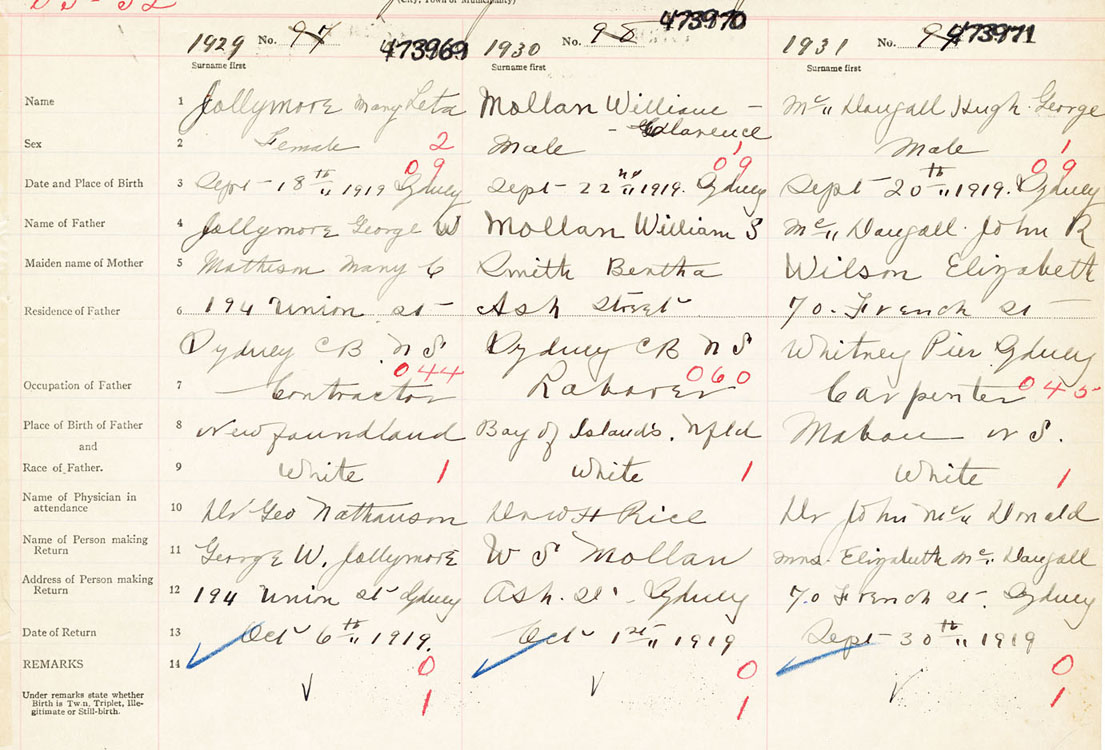 (City, Town or Municipality)
1929 No. 97 473969 1930 No. 98 473970 1931 No. 99 473971
Surname first Surname first Surname first
Name 1 Jollymore Mary Leta Mollan William – Mc" Dougall Hugh George
– Clarence
Sex 2 Female 2 Male 1 Male 1
09 09 09
Date and Place of Birth 3 Sept – 18th " 1919 Sydney Sept – 22nd " 1919. Sydney Sept – 20th " 1919. Sydney
Name of Father 4 Jollymore George W Mollan William S Mc" Dougall John R
Maiden name of Mother 5 Mathison Mary C Smith Bertha Wilson Elizabeth
Residence of Father 6 194 Union st Ash Street 70. French st
Sydney CB N S Sydney CB N S Whitney Pier Sydney
044 060 045
Occupation of Father 7 Contractor Laborer Carpenter
Place of Birth of Father 8 Newfoundland Bay of Islands, Nfld Mabou N S.
and
Race of Father. 9 White 1 White 1 White 1
Name of Physician in
attendance 10 Dr Geo Nathanson Dr W H Rice Dr John Mc" Donald
Name of Person making
Return 11 George W. Jollymore W S Mollan Mrs. Elizabeth Mc" Dougall
Address of Person making
Return 12 194 Union st Sydney Ash. St – Sydney 70 French st. Sydney
Date of Return 13 Oct 6th " 1919. Oct 1st " 1919 Sept – 30th " 1919
REMARKS 14 0 0 0
Under remarks state whether
Birth is Twin, Triplet, Ille-
gitimate or Still-birth. 1 1 1